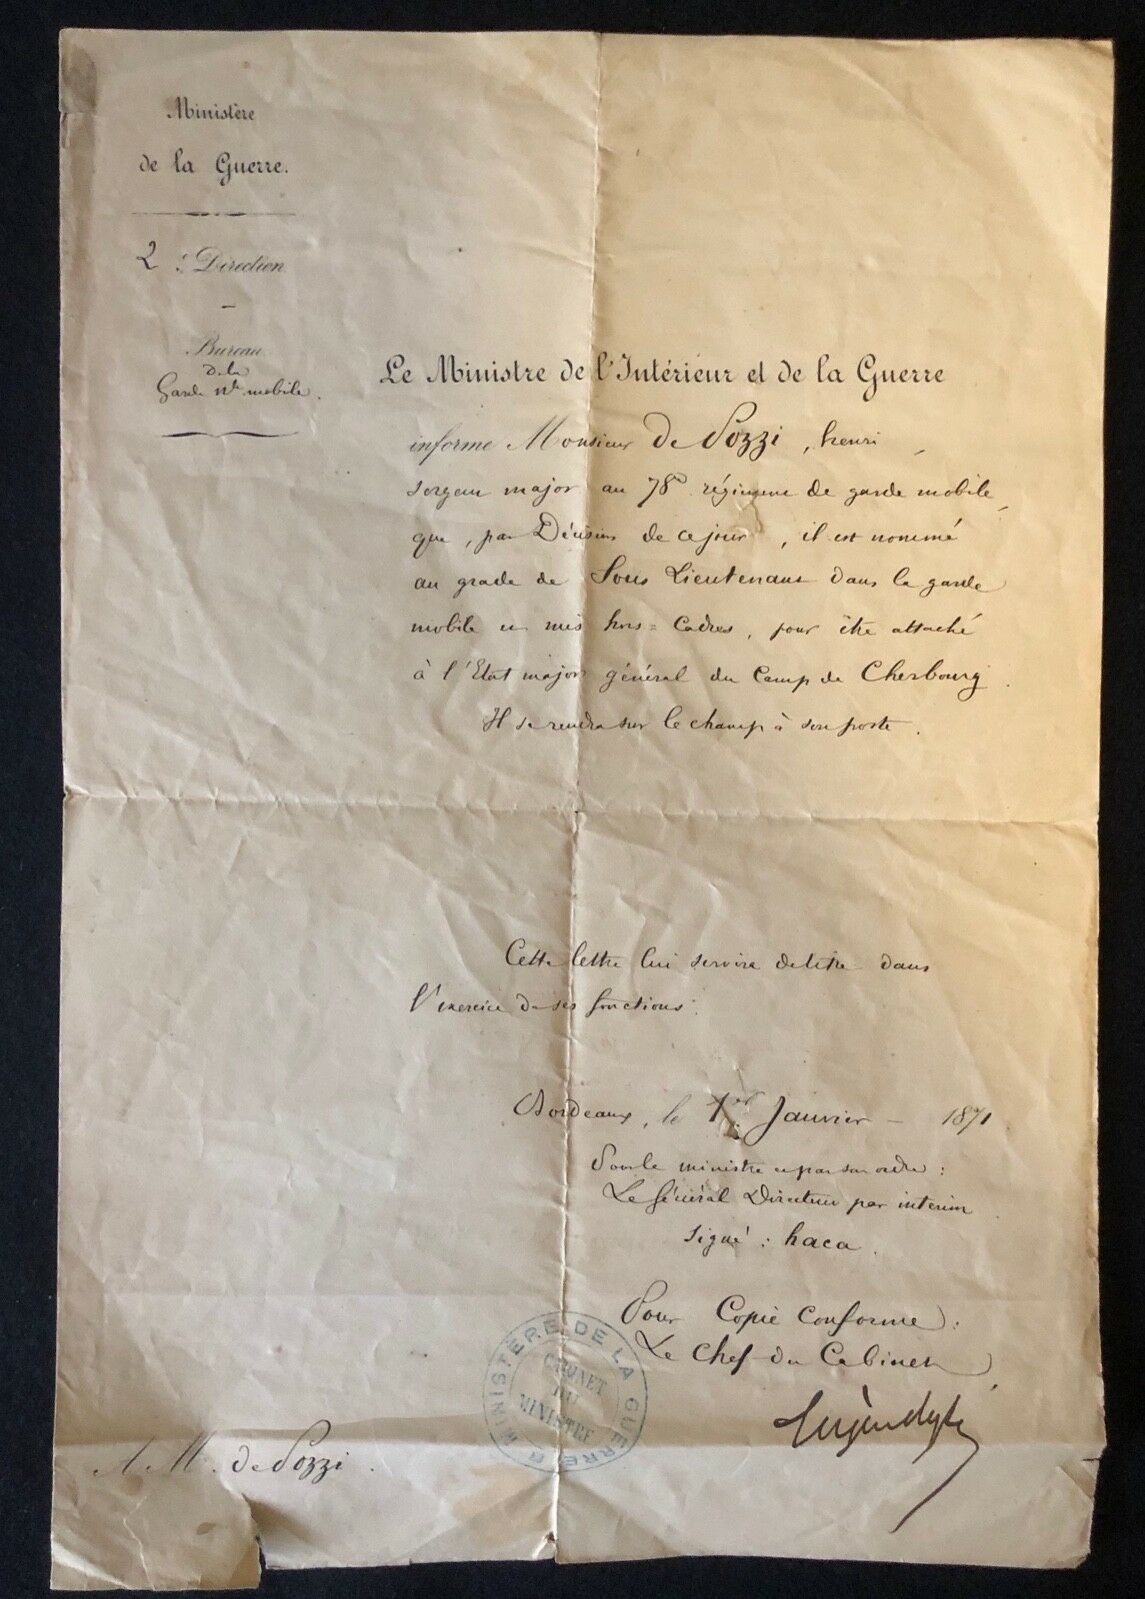 Ministère
de la Guerre.
2e Direction
Bureau
de la
Garde Nle mobile.
Le Ministre de l'Intérieur et de la Guerre
informe Monsieur De Pozzi, henri,
sergent major au 78e régiment de garde mobile,
que, par Décision de ce jour, il est nommé
au grade de Sous Lieutenant dans la garde
mobile et mis hors=Cadres, pour être attaché
à l'Etat major général du Camp de Cherbourg.
Il se rendra sur le champ à son poste.
Cette lettre lui servira de titre dans
l'exercice de ses fonctions.
Bordeaux, le Janvier 1871
Pour le ministre et par son ordre:
Le Général Directeur par interim
Signé: haca.
Pour Copie conforme:
Le Chef du Cabinet
MINISTÈRE DE LA GUERRE
CABINET
DU
MINISTRE
A M. de Pozzi.